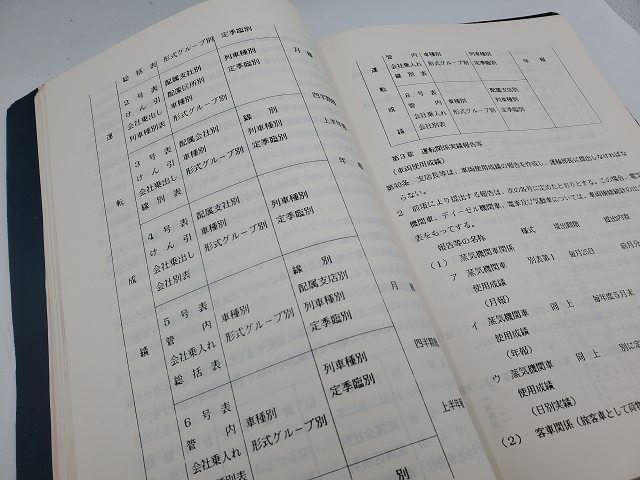 総括表 形式グループ別 定季臨別
2号表 配属支社別 列車種別 月報
けん引 配属区所別 定季臨別
会社乗出し 車種別
列車種別表 形式グループ別
四半期
3号表 配属会社別 線別
けん引 車種別 列車種別 上半年
会社乗出し 形式グループ別 定季臨別
線別表
年報
4号表 配属支社別 列車種別
けん引 車種別 定季臨別
会社乗出し 形式グループ別
会社別表
5号表 車種別 線別
管内 形式グループ別 配属支店別 月
会社乗入れ 列車種別
総括表 定季臨別
四半期
6号表 車種別 列車種別
管内 形式グループ別 定季臨別
会社乗入れ 上半年
会社別表
別
運転成績
管内 車種別 列車種別
会社乗入れ 形式グループ別 定季臨別 年報
線別表
8号表 配属支店別
管内 車種別 列車種別
会社乗入れ 形式グループ別 定季臨別
会社別表
運転成績
第3章 運転関係実績報告等
(車両使用成績)
第40条 支店長等は、車両使用成績の報告を作成し、運輸部長に提出しなければな
らない。
2 前項により提出する報告は、次の各号に定めたとおりとする。この場合、電
機関車、ディーゼル機関車、電車及び気動車については、車両検修統計の
表をもってする。
報告等の名称 様式 提出期限 提出内容
(1) 蒸気機関車関係
ア 蒸気機関車 別表第1 毎月25日 前月分
使用成績
(月報)
イ 蒸気機関車 同上 毎年度5月末
使用成績
(年報)
ウ 蒸気機関車 同上 別に定
使用成績
(日別実績)
(2) 客車関係(旅客車として荷物